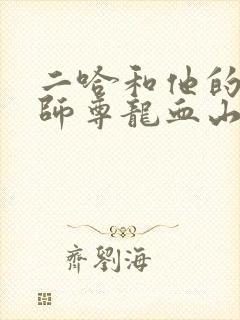 二哈和他的
師尊龍血山
齊劉海